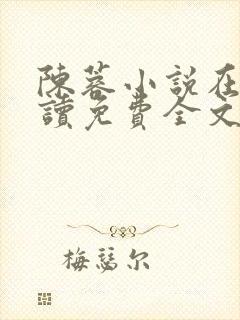 陳蓉小說在
讀免費全文
梅瑟尔